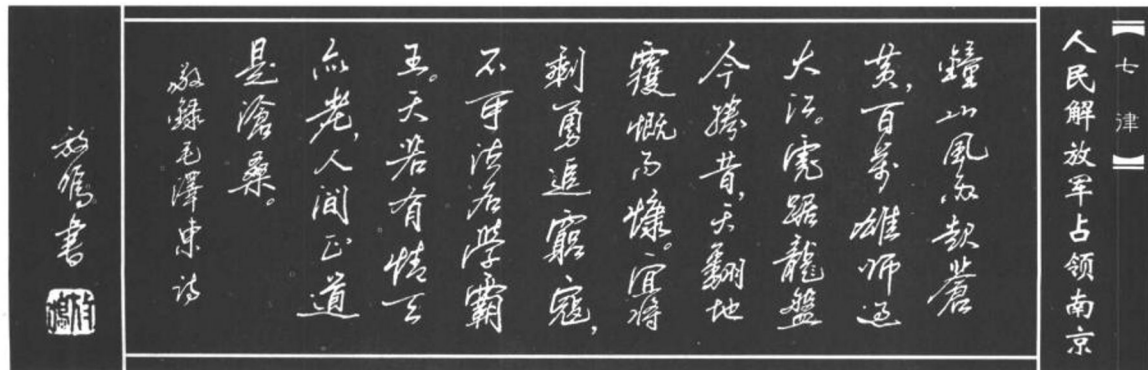 【七律】
人民解放军占领南京
鐘山風雨起蒼
黄,百萬雄师过
大江。虎踞龍盤
今勝昔,天翻地
覆慨而慷。宜将
剩勇追窮寇,
不可沽名学霸
王。天若有情天
亦老,人间正道
是滄桑。
敬録毛澤東诗
放鸣書